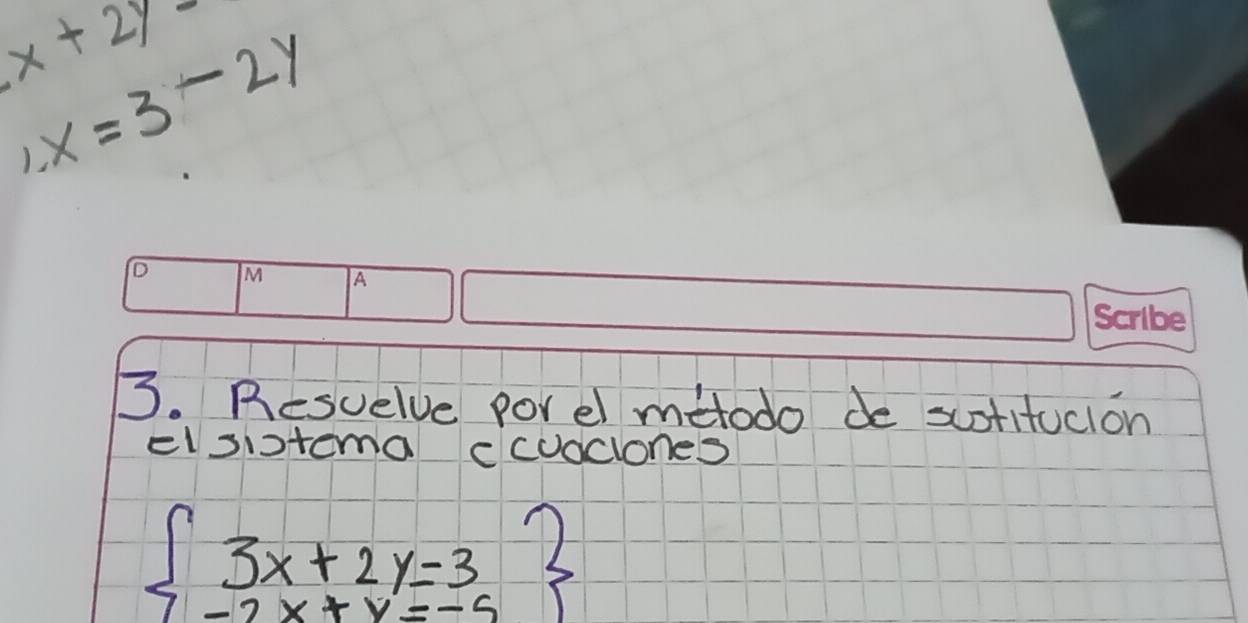 x + 2y -
x = 3 - 2y
D M A
Scribe
3. Resuelve por el método de sustitución
el sistema ecuaciones
3x + 2y = 3
-2x + y = -5